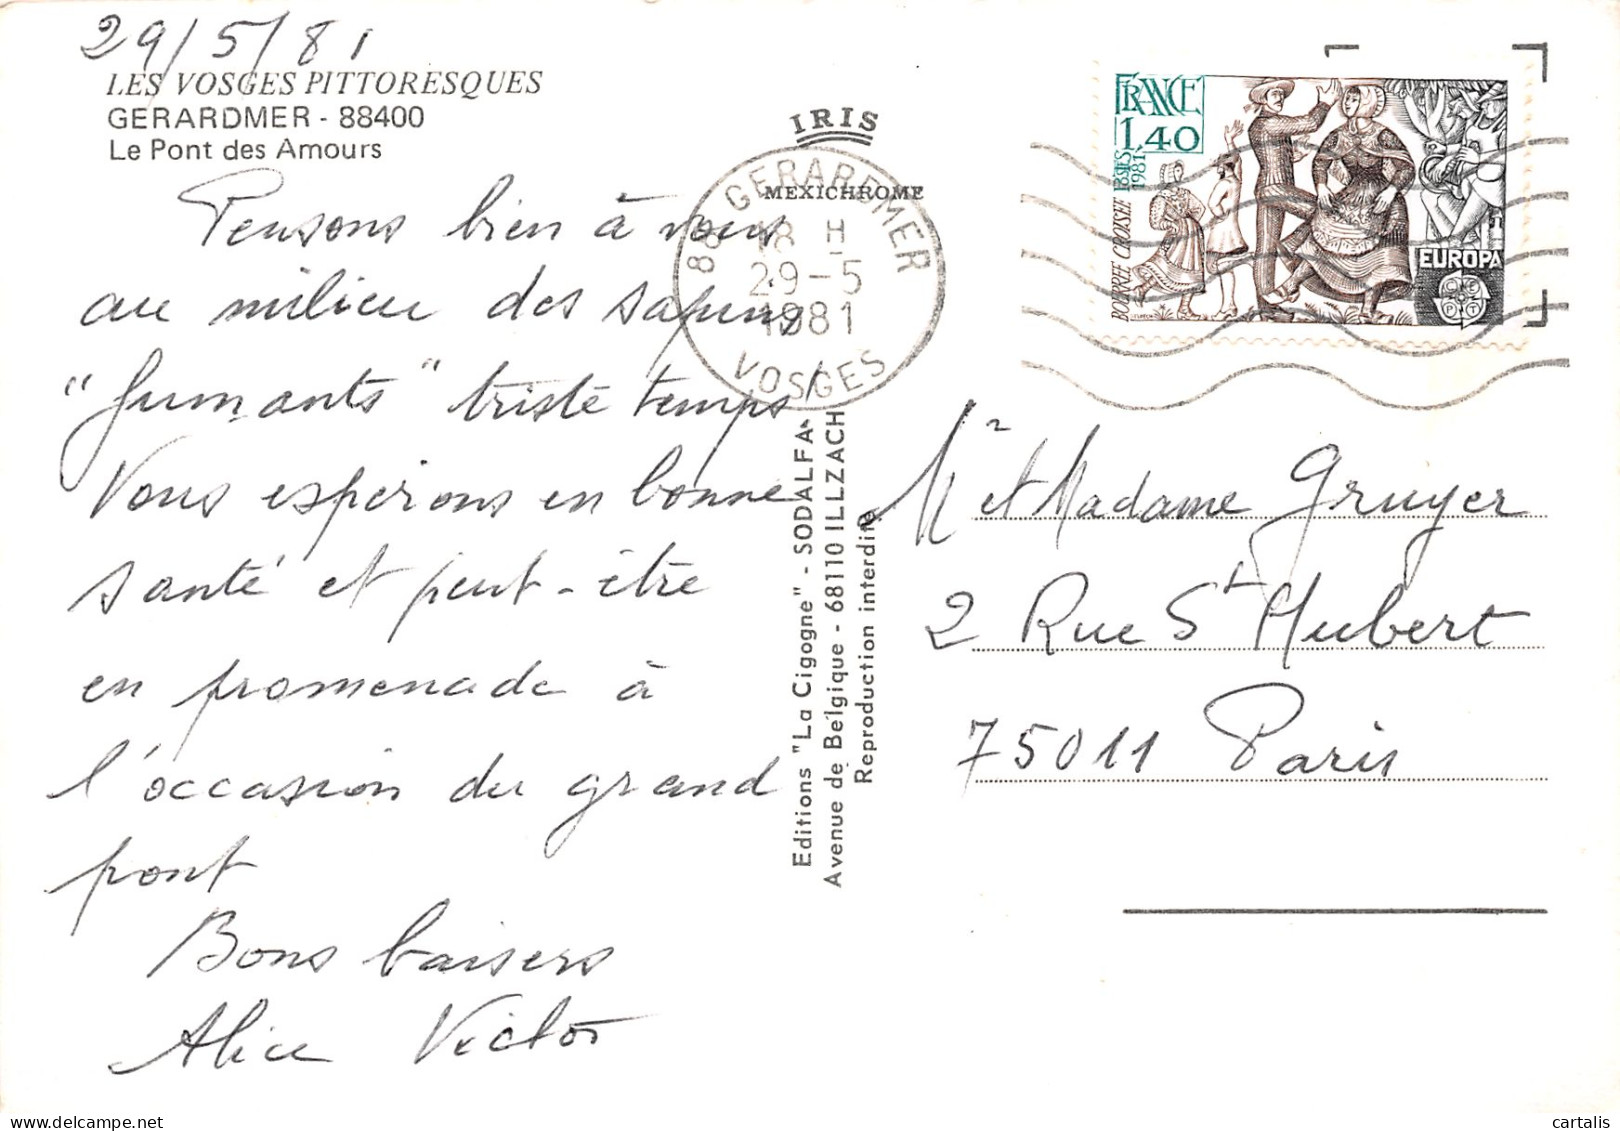 29/5/81
LES VOSGES PITTORESQUES
GERARDMER - 88400
Le Pont des Amours
Pensons bien à vous
au milieu des sapins
"fumants" triste temps!
Vous espérons en bonne
santé et peut-être
en promenade à
l'occasion du grand
pont
Bons baisers
Alice Victor
IRIS
MEXICHROME
88 GERARDMER
18 H
29-5
1981
VOSGES
Editions "La Cigogne" - SODALFA
Avenue de Belgique - 68110 ILLZACH
Reproduction interdite
FRANCE
1,40
POSTES
1981
BOURRÉE CROISÉE
EUROPA
CEPT
Mr et Madame Gruyer
2 Rue St Hubert
75011 Paris
cartalis